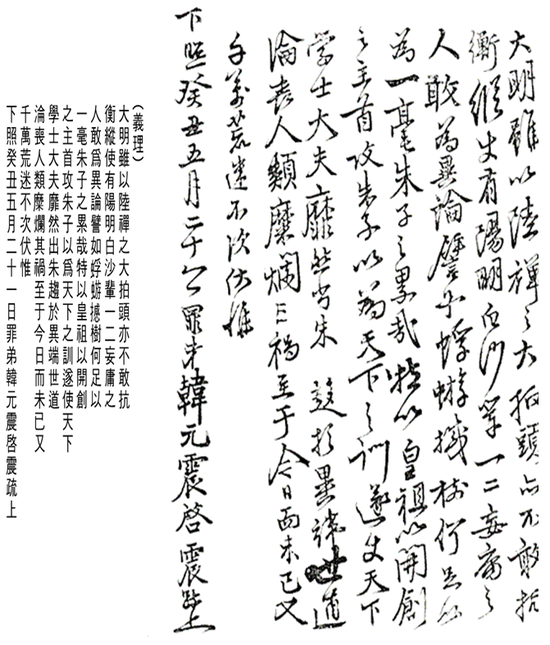 大明雖以陸禪之大拍頭亦不敢抗
衡縱使有陽明白沙輩一二妄庸之
人敢爲異論譬如蜉蝣撼樹何足以
爲一毫朱子之累哉特以皇祖以開創
之主首攻朱子以爲天下之訓遂使天下
學士大夫靡然出朱趨於異端世道
淪喪人類糜爛其禍至于今日而未已又
千萬荒迷不次伏惟
下照癸丑五月二十日罪弟韓元震啓震疏上
(義理)
大明雖以陸禪之大拍頭亦不敢抗
衡縱使有陽明白沙輩一二妄庸之
人敢爲異論譬如蜉蝣撼樹何足以
一毫朱子之累哉特以皇祖以開創
之主首攻朱子以爲天下之訓遂使天下
學士大夫靡然出朱趨於異端世道
淪喪人類糜爛其禍至于今日而未已又
千萬荒迷不次伏惟
下照癸丑五月二十一日罪弟韓元震啓震疏上